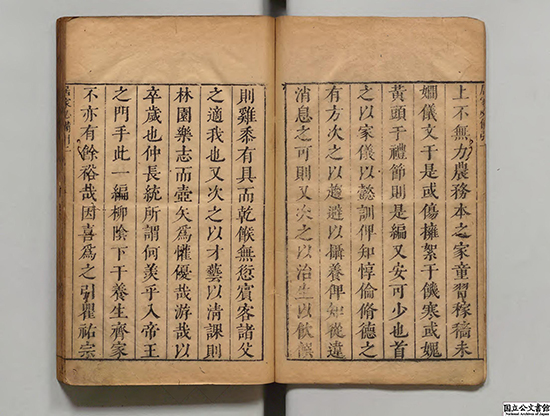 上不無力農務本之家童習稼穡未
嫺儀文于是或傷擁絮于饑寒或媿
黃頭于禮節則是編又安可少也首
之以家儀以懿訓俾知惇倫脩德之
有方次之以趨避以攝養俾知從違
消息之可則又次之以治生以飲饌
則雞黍有具而乾餱無愆賓客諸父
之適我也又次之以才藝以清課則
林園樂志而壺矢爲懽優哉游哉以
卒歲也仲長統所謂何羨乎入帝王
之門手此一編柳陰下于養生齊家
不亦有餘裕哉因喜爲之引瞿祐宗
国立公文書館
National Archives of Japan